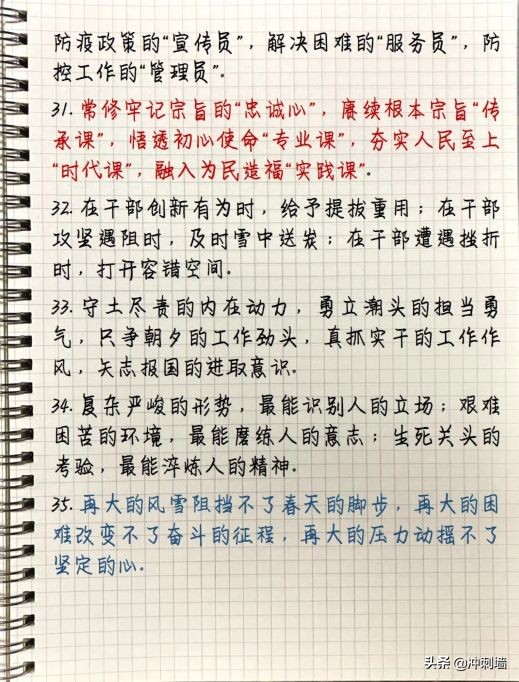 防疫政策的“宣传员”，解决困难的“服务员”，防
控工作的“管理员”。
31. 常修牢记宗旨的“忠诚心”，赓续根本宗旨“传
承课”，悟透初心使命“专业课”，夯实人民至上
“时代课”，融入为民造福“实践课”。
32. 在干部创新有为时，给予提拔重用；在干部
攻坚遇阻时，及时雪中送炭；在干部遭遇挫折
时，打开容错空间。
33. 守土尽责的内在动力，勇立潮头的担当勇
气，只争朝夕的工作劲头，真抓实干的工作作
风，矢志报国的进取意识。
34. 复杂严峻的形势，最能识别人的立场；艰难
困苦的环境，最能磨练人的意志；生死关头的
考验，最能淬炼人的精神。
35. 再大的风雪阻挡不了春天的脚步，再大的困
难改变不了奋斗的征程，再大的压力动摇不了
坚定的心。
头条 @冲刺墙